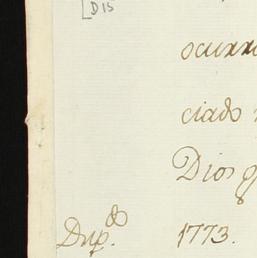 D15
ocurr
ciado
Dios g
Dup.do 1773.